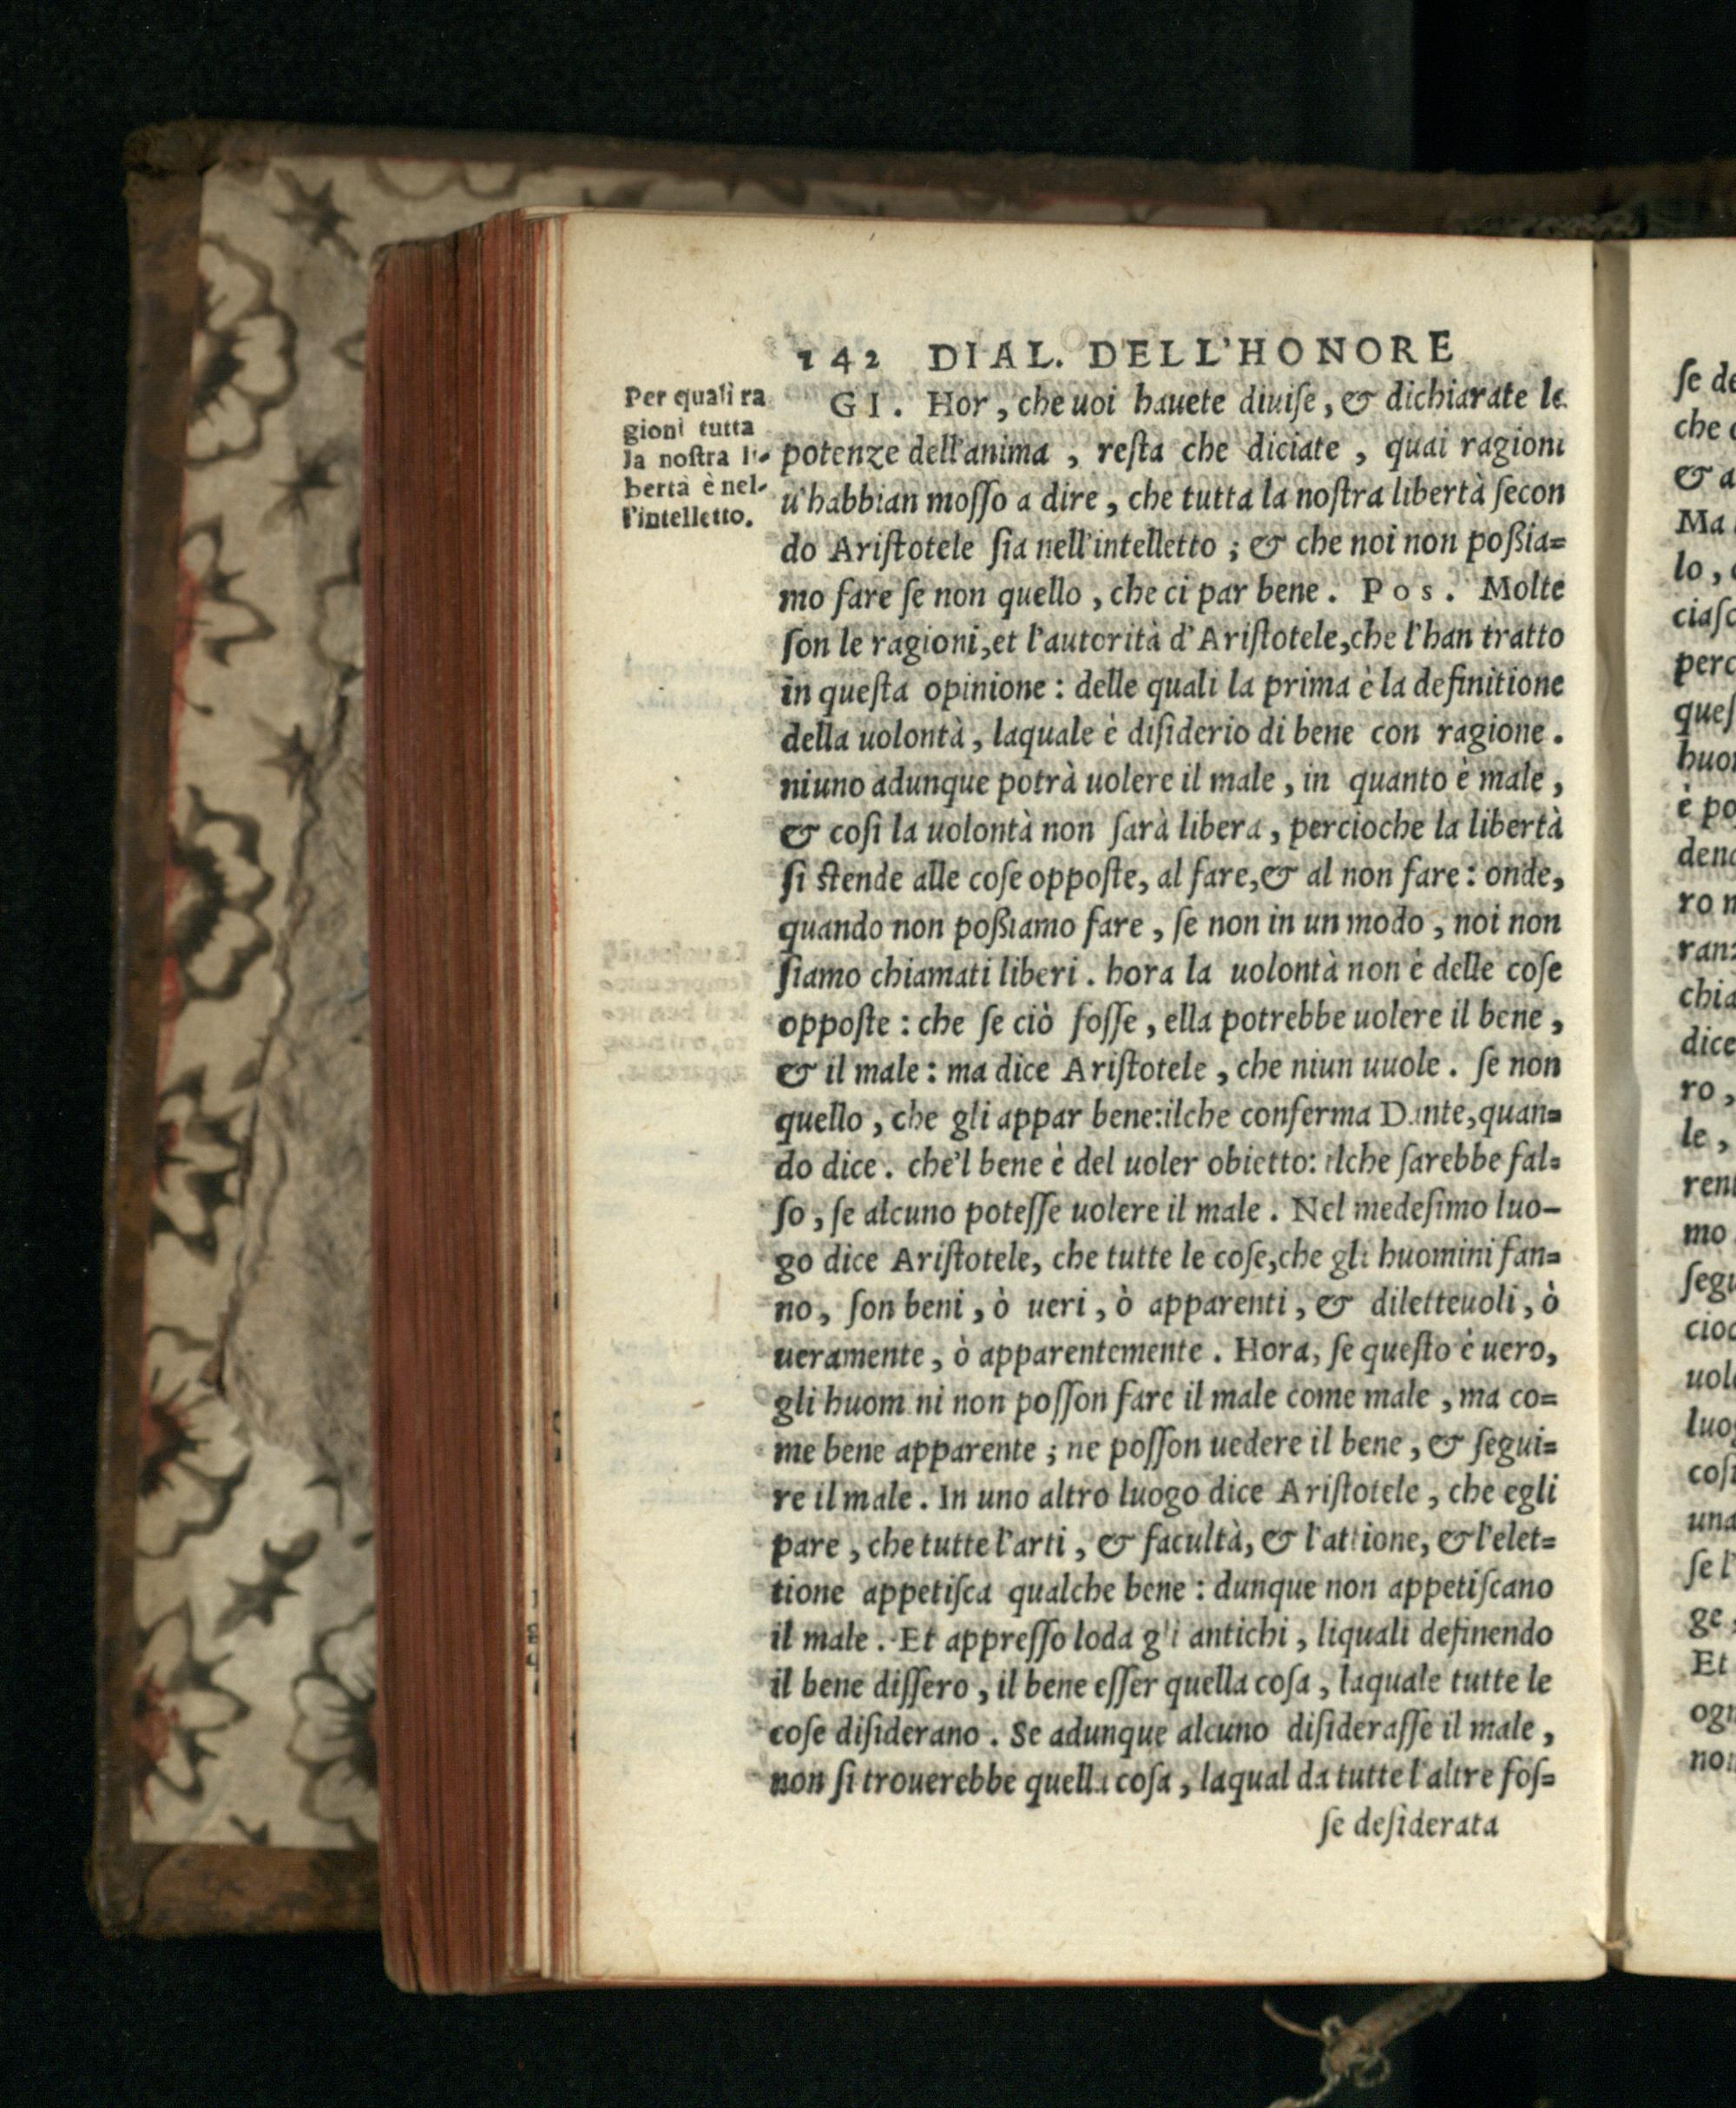 142 DIAL. DELL'HONORE
Per quali ra
gioni tutta
la noſtra li-
bertà è nel-
l'intelletto.
GI. Hor, che uoi hauete diuiſe, & dichiarate le
potenze dell'anima, reſta che diciate, quai ragioni
u'habbian moſſo a dire, che tutta la noſtra libertà ſecon
do Ariſtotele ſia nell'intelletto; & che noi non poßia=
mo fare ſe non quello, che ci par bene. Pos. Molte
ſon le ragioni, et l'autorità d'Ariſtotele, che l'han tratto
in queſta opinione: delle quali la prima è la definitione
della uolontà, laquale è diſiderio di bene con ragione.
niuno adunque potrà uolere il male, in quanto è male,
& coſi la uolontà non ſarà libera, percioche la libertà
ſi ſtende alle coſe oppoſte, al fare, & al non fare: onde,
quando non poßiamo fare, ſe non in un modo, noi non
ſiamo chiamati liberi. hora la uolontà non è delle coſe
oppoſte: che ſe ciò foſſe, ella potrebbe uolere il bene,
& il male: ma dice Ariſtotele, che niun uuole. ſe non
quello, che gli appar bene: ilche conferma Dante, quan=
do dice. che'l bene è del uoler obietto: ilche ſarebbe fal=
ſo, ſe alcuno poteſſe uolere il male. Nel medeſimo luo-
go dice Ariſtotele, che tutte le coſe, che gli huomini fan=
no, ſon beni, ò ueri, ò apparenti, & diletteuoli, ò
ueramente, ò apparentemente. Hora, ſe queſto è uero,
gli huomini non poſſon fare il male come male, ma co=
me bene apparente; ne poſſon uedere il bene, & ſegui=
re il male. In uno altro luogo dice Ariſtotele, che egli
pare, che tutte l'arti, & facultà, & l'attione, & l'elet=
tione appetiſca qualche bene: dunque non appetiſcano
il male. Et appreſſo loda gli antichi, liquali definendo
il bene diſſero, il bene eſſer quella coſa, laquale tutte le
coſe diſiderano. Se adunque alcuno diſideraſſe il male,
non ſi trouerebbe quella coſa, laqual da tutte l'altre foſ=
ſe deſiderata
ſe de
che
& a
Ma
lo,
ciaſc
perc
queſ
huo
è po
den
ro
ran
chia
dice
ro,
le,
ren
mo
ſegu
cioc
uol
luo
coſi
una
ſe l'
ge,
Et
ogn
non